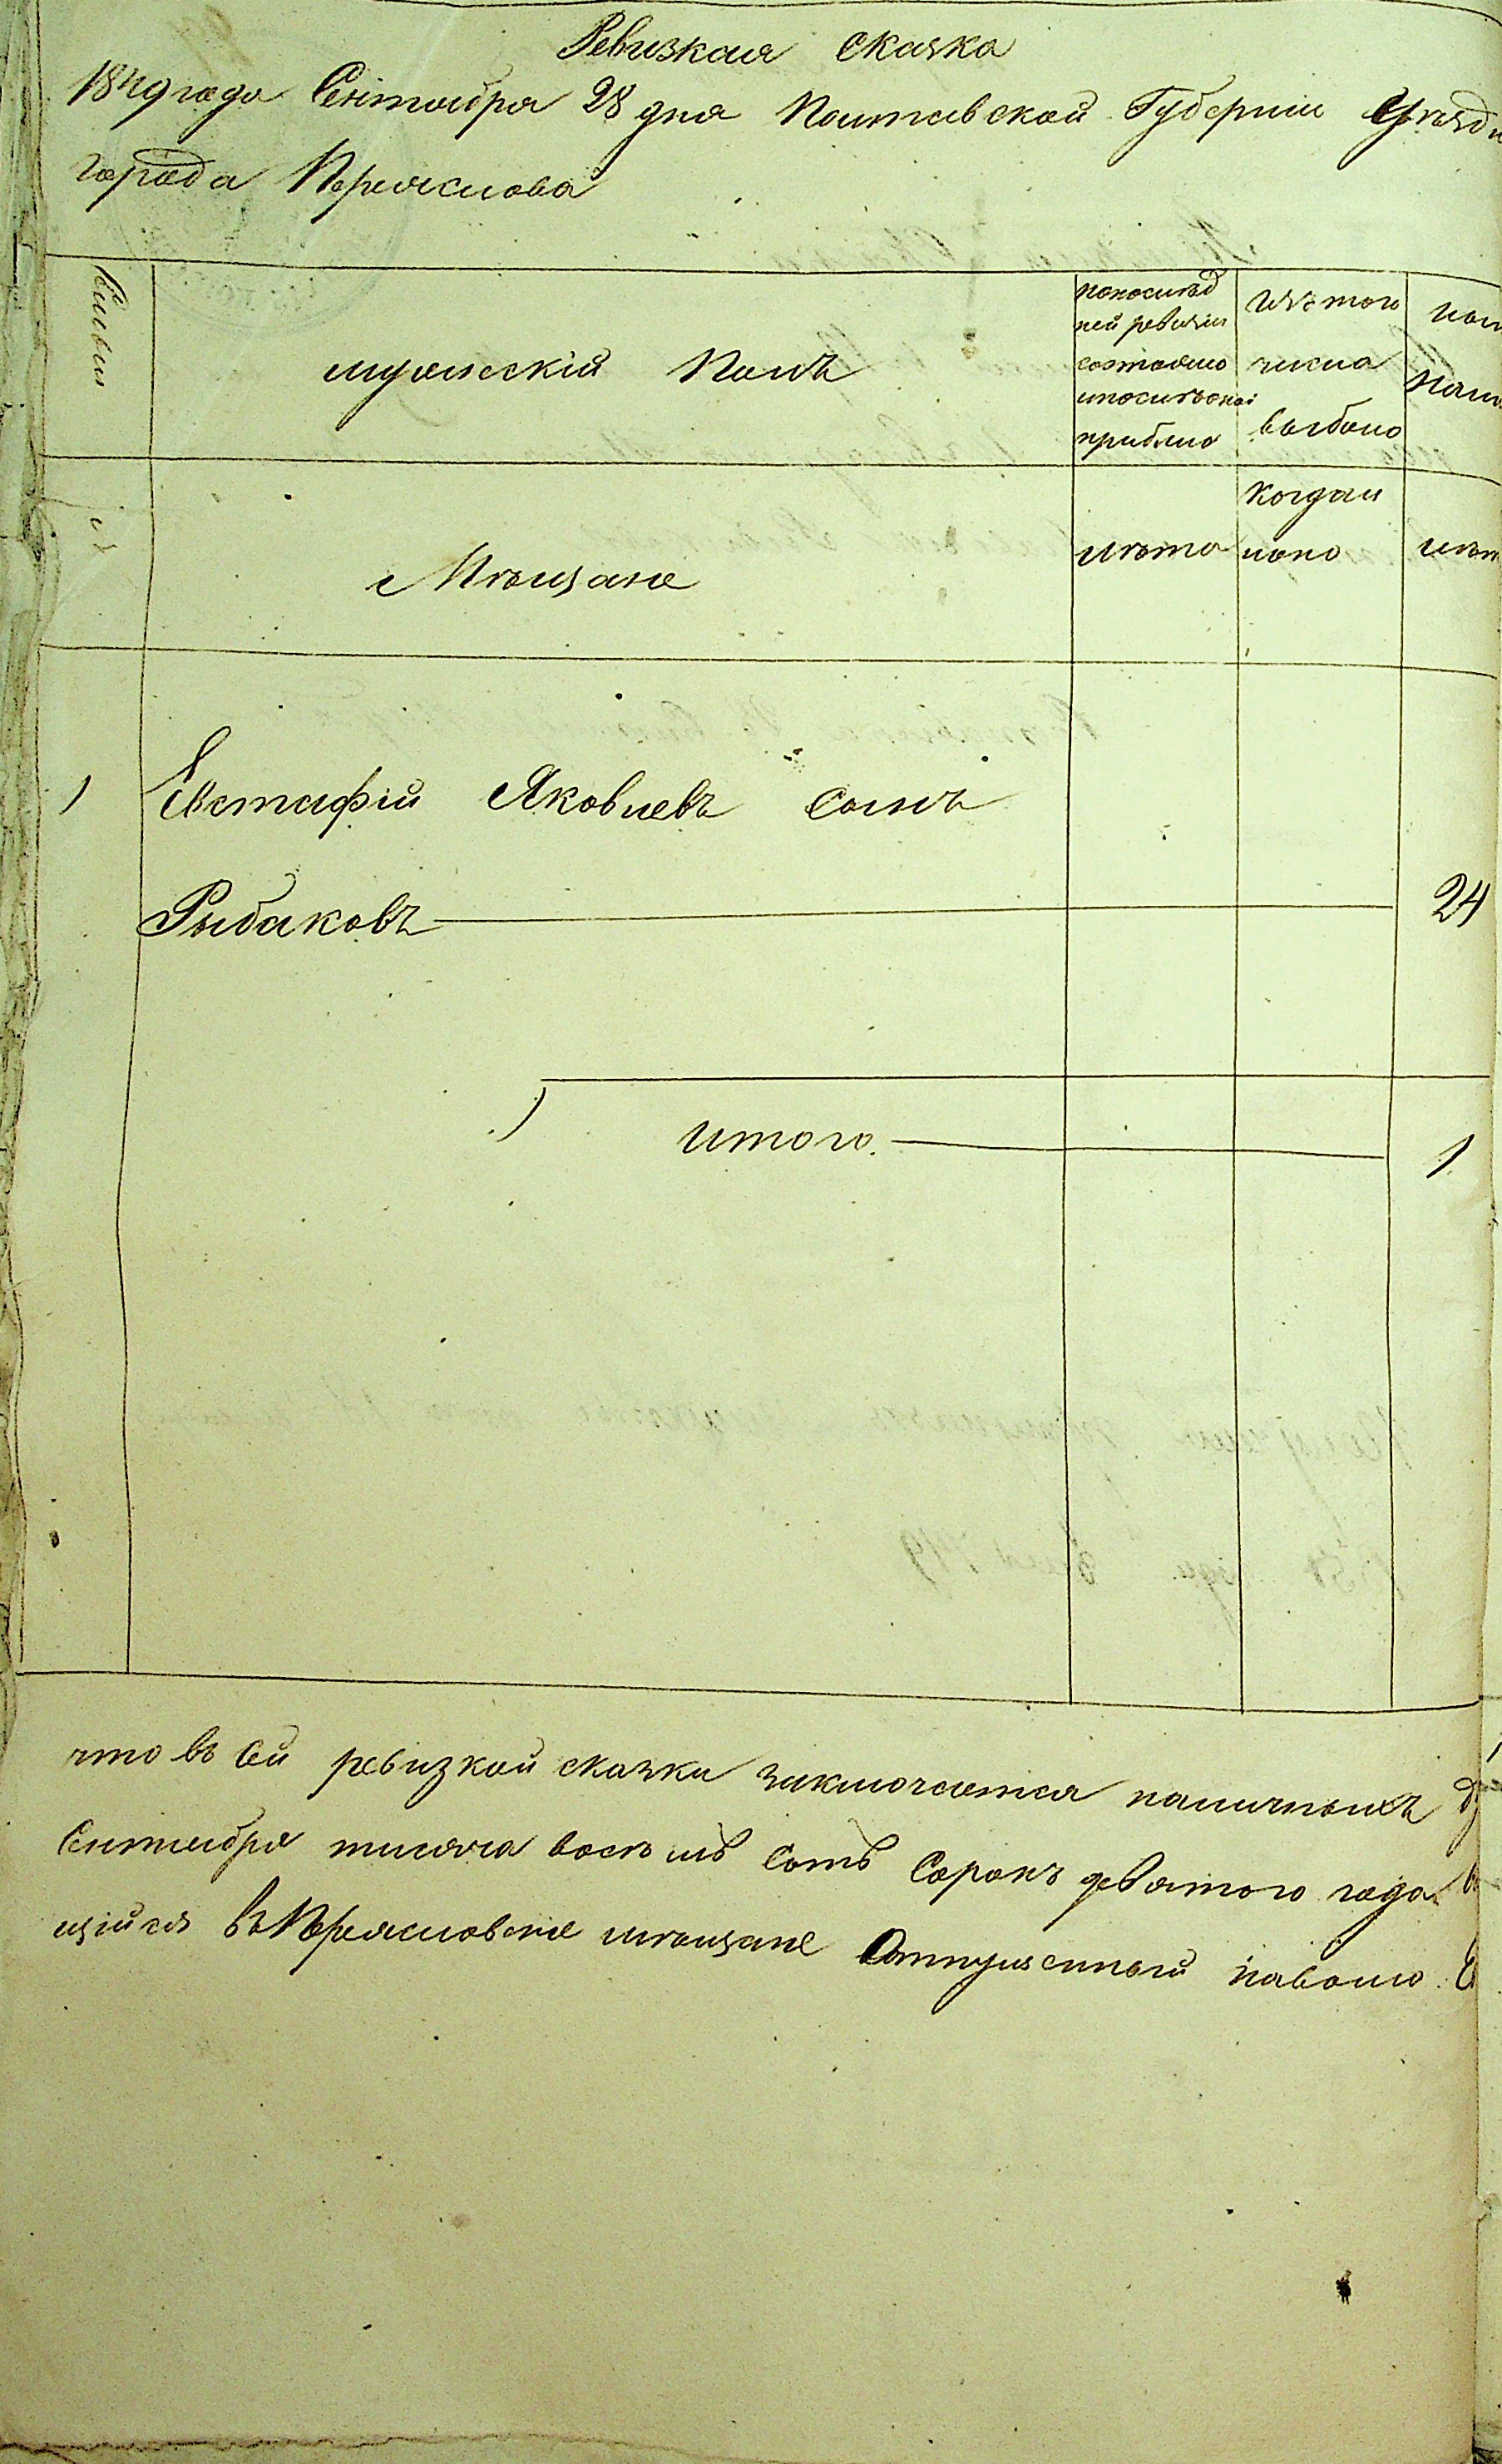 Ревизкая Сказка
1849 года Сентября 28 дня Полтавской Губерніи Уѣздн
города Переяслова
мужескій Полъ
попослѣд
ней ревизіи
состояло
ипослѣтого
прибыло
Изъ того
числа
выбыло
Мѣщане
лѣта
Когда и
лѣт
1 Евстафій Яковлевъ Сынъ
Рыбаковъ 24
1 итого. 1
что въ сей ревизкой сказки заключается наличныхъ
Сентября тисяча восемь сотъ Сорокъ девятого года
щійся въ Переясловские мѣщане Отпущенный наволю